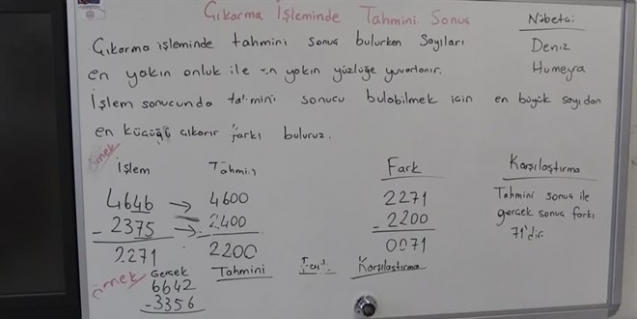 Çıkarma İşleminde Tahmini Sonuç
Nöbetçi
Çıkarma işleminde tahmini sonuç bulurken sayıları
Deniz
en yakın onluk ile en yakın yüzlüğe yuvarlanır.
Humeyra
İşlem sonucunda tahmini sonucu bulabilmek için en büyük sayıdan
en küçüğü çıkarır farkı buluruz.
örnek
İşlem Tahmin Fark Karşılaştırma
4646 → 4600 2271 Tahmini sonuç ile
- 2375 → - 2400 - 2200 gerçek sonuç farkı
2271 2200 0071 71'dir.
örnek Gerçek Tahmini Karşılaştırma
6642
- 3356